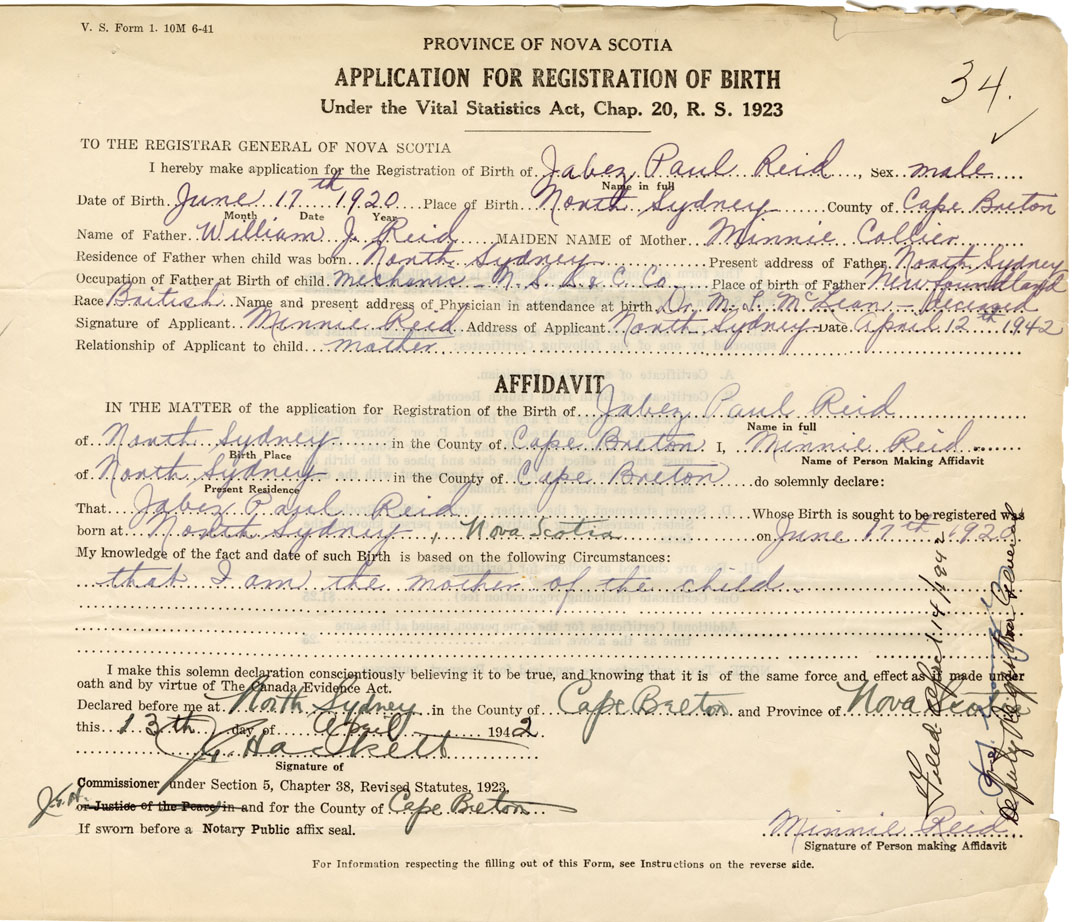 V. S. Form 1. 10M 6-41
PROVINCE OF NOVA SCOTIA
APPLICATION FOR REGISTRATION OF BIRTH
Under the Vital Statistics Act, Chap. 20, R. S. 1923
34.
TO THE REGISTRAR GENERAL OF NOVA SCOTIA
I hereby make application for the Registration of Birth of Jabez Paul Reid, Sex male
Name in full
Date of Birth June 17th 1920 Place of Birth North Sydney County of Cape Breton
Month Date Year
Name of Father William J. Reid MAIDEN NAME of Mother Minnie Collier
Residence of Father when child was born North Sydney Present address of Father North Sydney
Occupation of Father at Birth of child mechanic - N. S. S. & C. Co. Place of birth of Father Newfoundland
Race British Name and present address of Physician in attendance at birth Dr. M. T. McLean - deceased
Signature of Applicant Minnie Reid Address of Applicant North Sydney Date April 12th 1942
Relationship of Applicant to child mother
AFFIDAVIT
IN THE MATTER of the application for Registration of the Birth of Jabez Paul Reid
Name in full
of North Sydney in the County of Cape Breton I, Minnie Reid
Birth Place Name of Person Making Affidavit
of North Sydney in the County of Cape Breton do solemnly declare:
Present Residence
That Jabez Paul Reid Whose Birth is sought to be registered was
born at North Sydney, Nova Scotia on June 17th 1920
My knowledge of the fact and date of such Birth is based on the following Circumstances:
that I am the mother of the child.
I make this solemn declaration conscientiously believing it to be true, and knowing that it is of the same force and effect as if made under
oath and by virtue of The Canada Evidence Act.
Declared before me at North Sydney in the County of Cape Breton and Province of Nova Scotia
this 13th day of April 1942
Hackett
Signature of
Commissioner under Section 5, Chapter 38, Revised Statutes, 1923,
J.G.H. or Justice of the Peace, in and for the County of Cape Breton
If sworn before a Notary Public affix seal.
Minnie Reid
Signature of Person making Affidavit
For Information respecting the filling out of this Form, see Instructions on the reverse side.
Filed April 14/1942
Deputy Registrar General